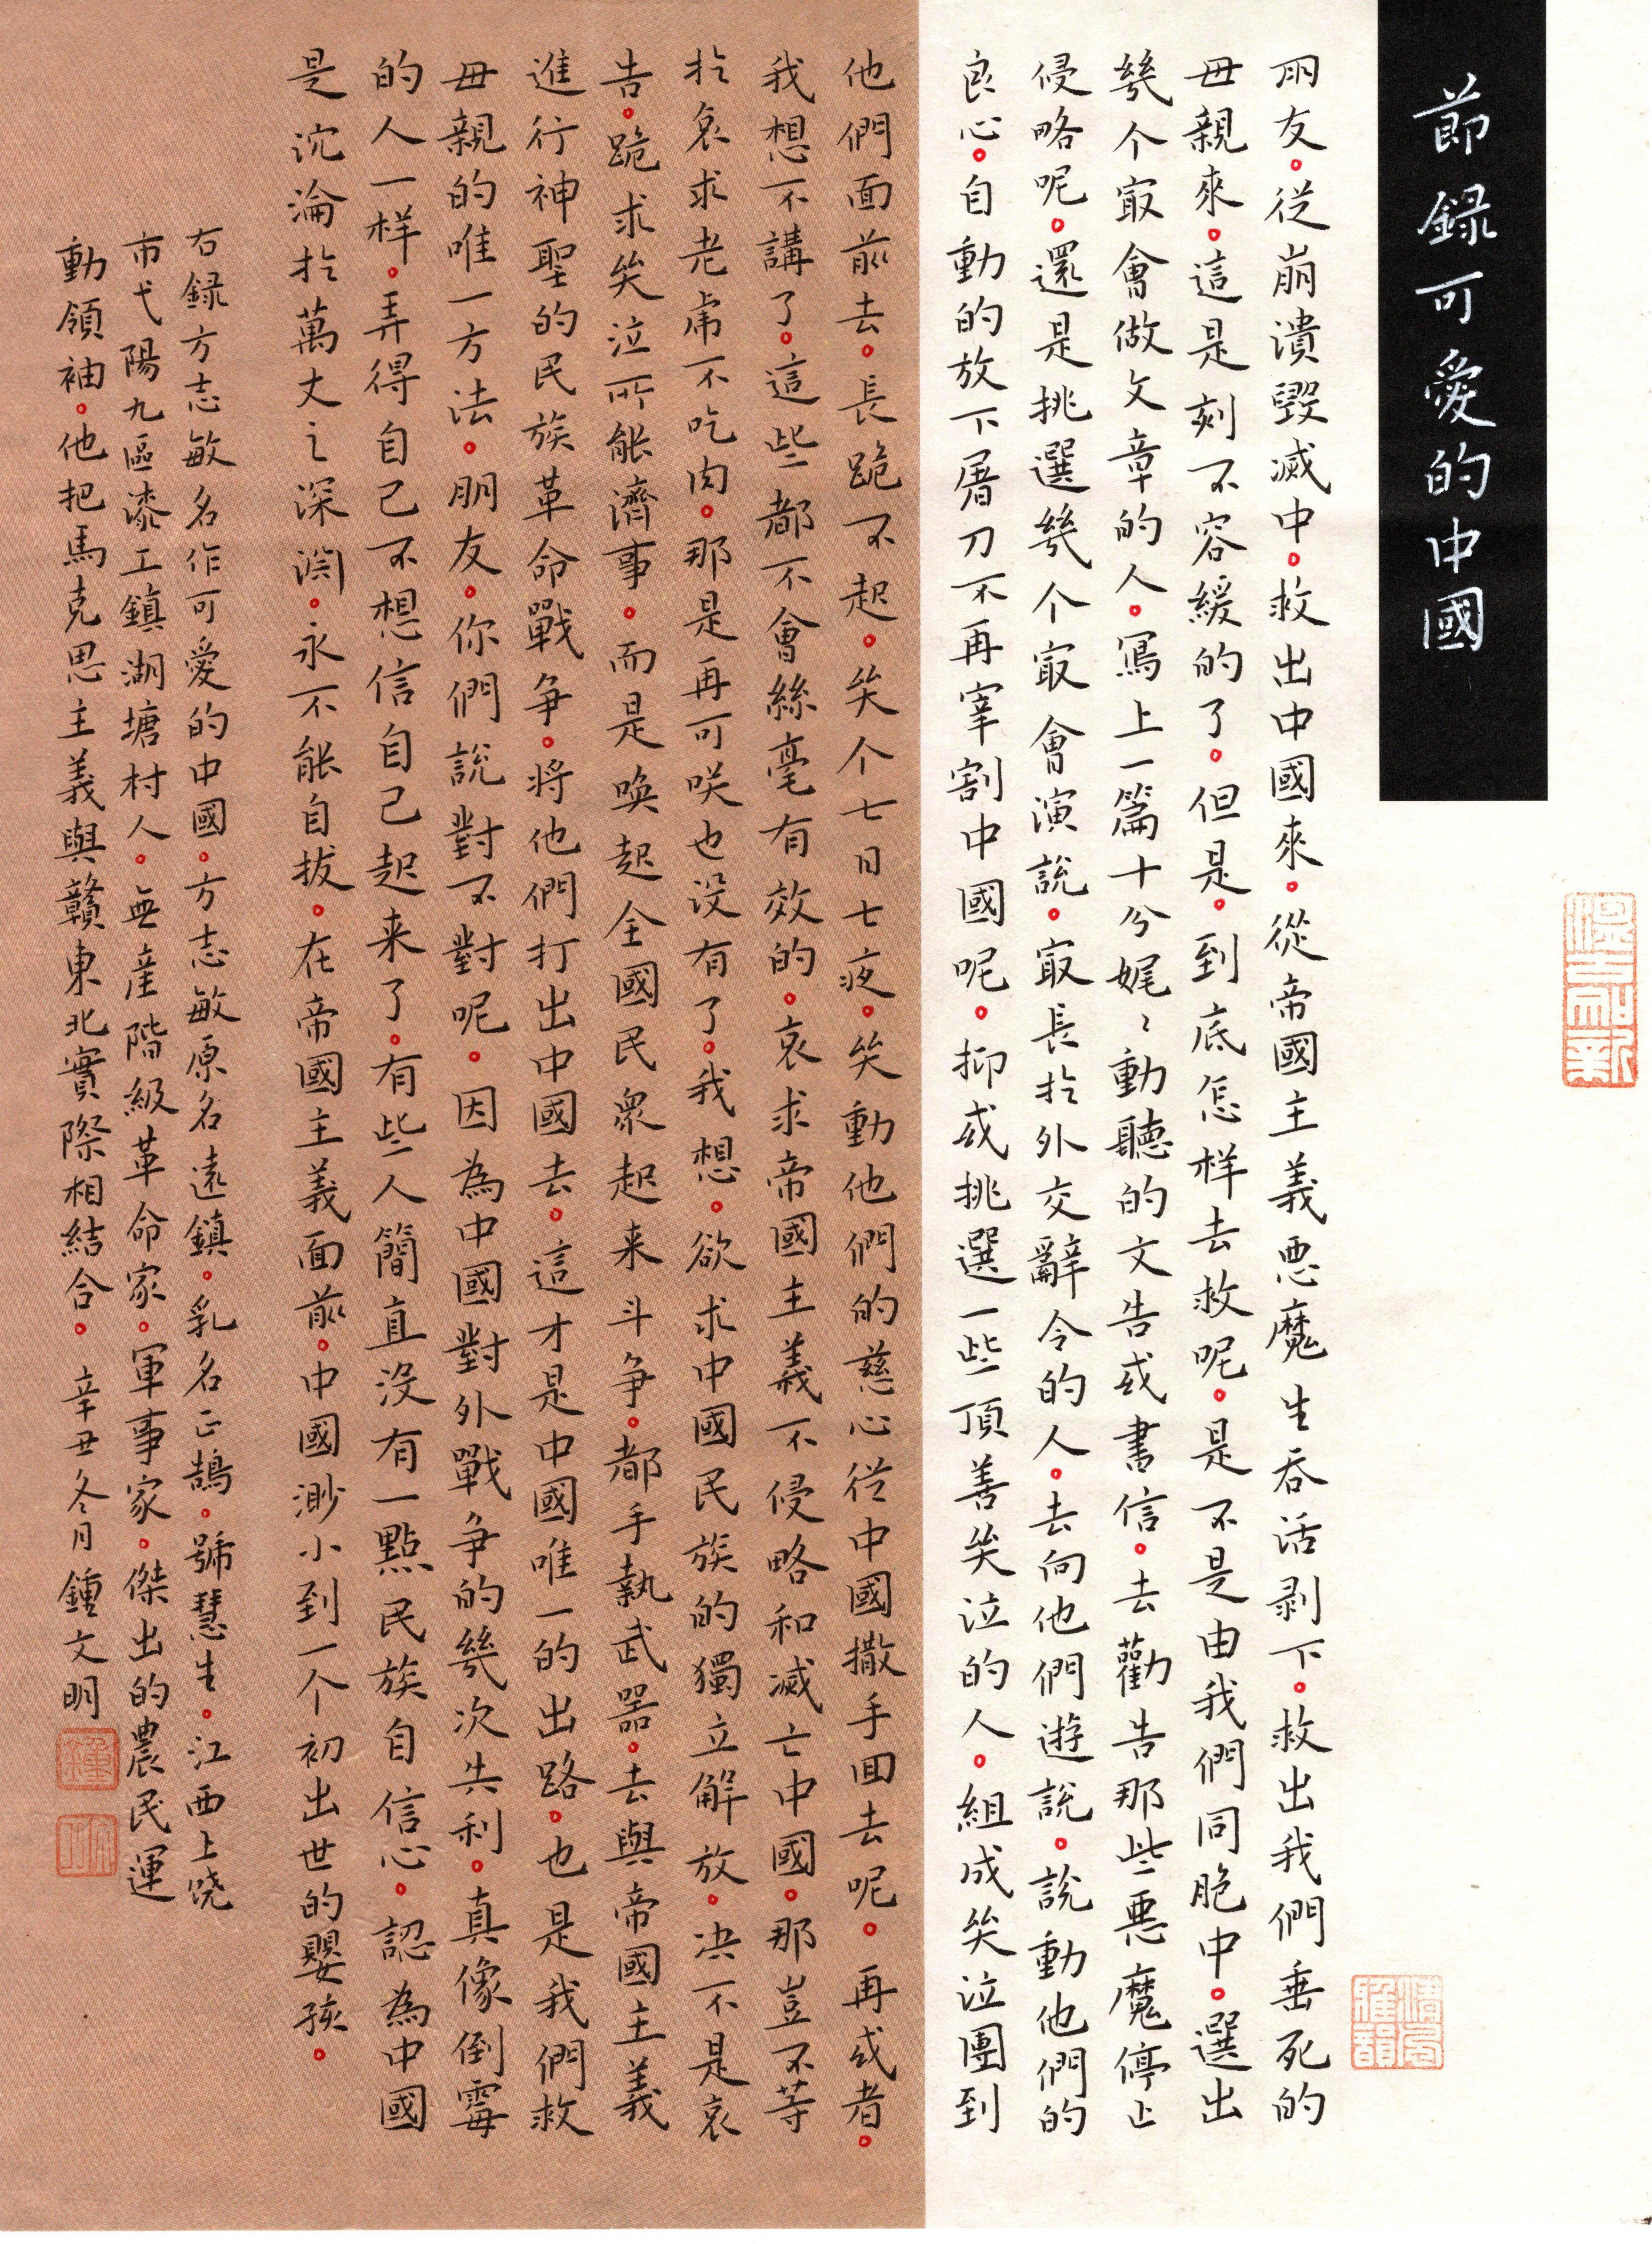 節録可愛的中國
朋友。從崩潰毁滅中。救出中國來。從帝國主義惡魔生吞活剥下。救出我們垂死的
母親來。這是刻不容緩的了。但是。到底怎样去救呢。是不是由我們同胞中。選出
幾个最會做文章的人。寫上一篇十分娓〻動聽的文告或書信。去勸告那些惡魔停止
侵略呢。還是挑選幾个最會演說。最長於外交辭令的人。去向他們遊說。說動他們的
良心。自動的放下屠刀不再宰割中國呢。抑或挑選一些頂善哭泣的人。組成哭泣團到
他們面前去。長跪不起。哭个七日七夜。哭動他們的慈心從中國撒手回去呢。再或者。
我想不講了。這些都不會絲毫有效的。哀求帝國主義不侵略和滅亡中國。那豈不等
於哀求老虎不吃肉。那是再可笑也没有了。我想。欲求中國民族的獨立解放。决不是哀
告。跪求哭泣所能濟事。而是唤起全國民衆起来斗争。都手執武器。去與帝國主義
進行神聖的民族革命戰争。將他們打出中國去。這才是中國唯一的出路。也是我們救
母親的唯一方法。朋友。你們說對不對呢。因為中國對外戰争的幾次失利。真像倒霉
的人一样。弄得自己不想信自己起来了。有些人簡直没有一點民族自信心。認為中國
是沉淪於萬丈之深渊。永不能自拔。在帝國主義面前。中國渺小到一个初出世的嬰孩。
右録方志敏名作可愛的中國。方志敏原名遠鎮。乳名正鵠。號慧生。江西上饶
市弋陽九區漆工鎮湖塘村人。無産階級革命家。軍事家。傑出的農民運
動領袖。他把馬克思主義與贛東北實際相結合。辛丑冬月鍾文明